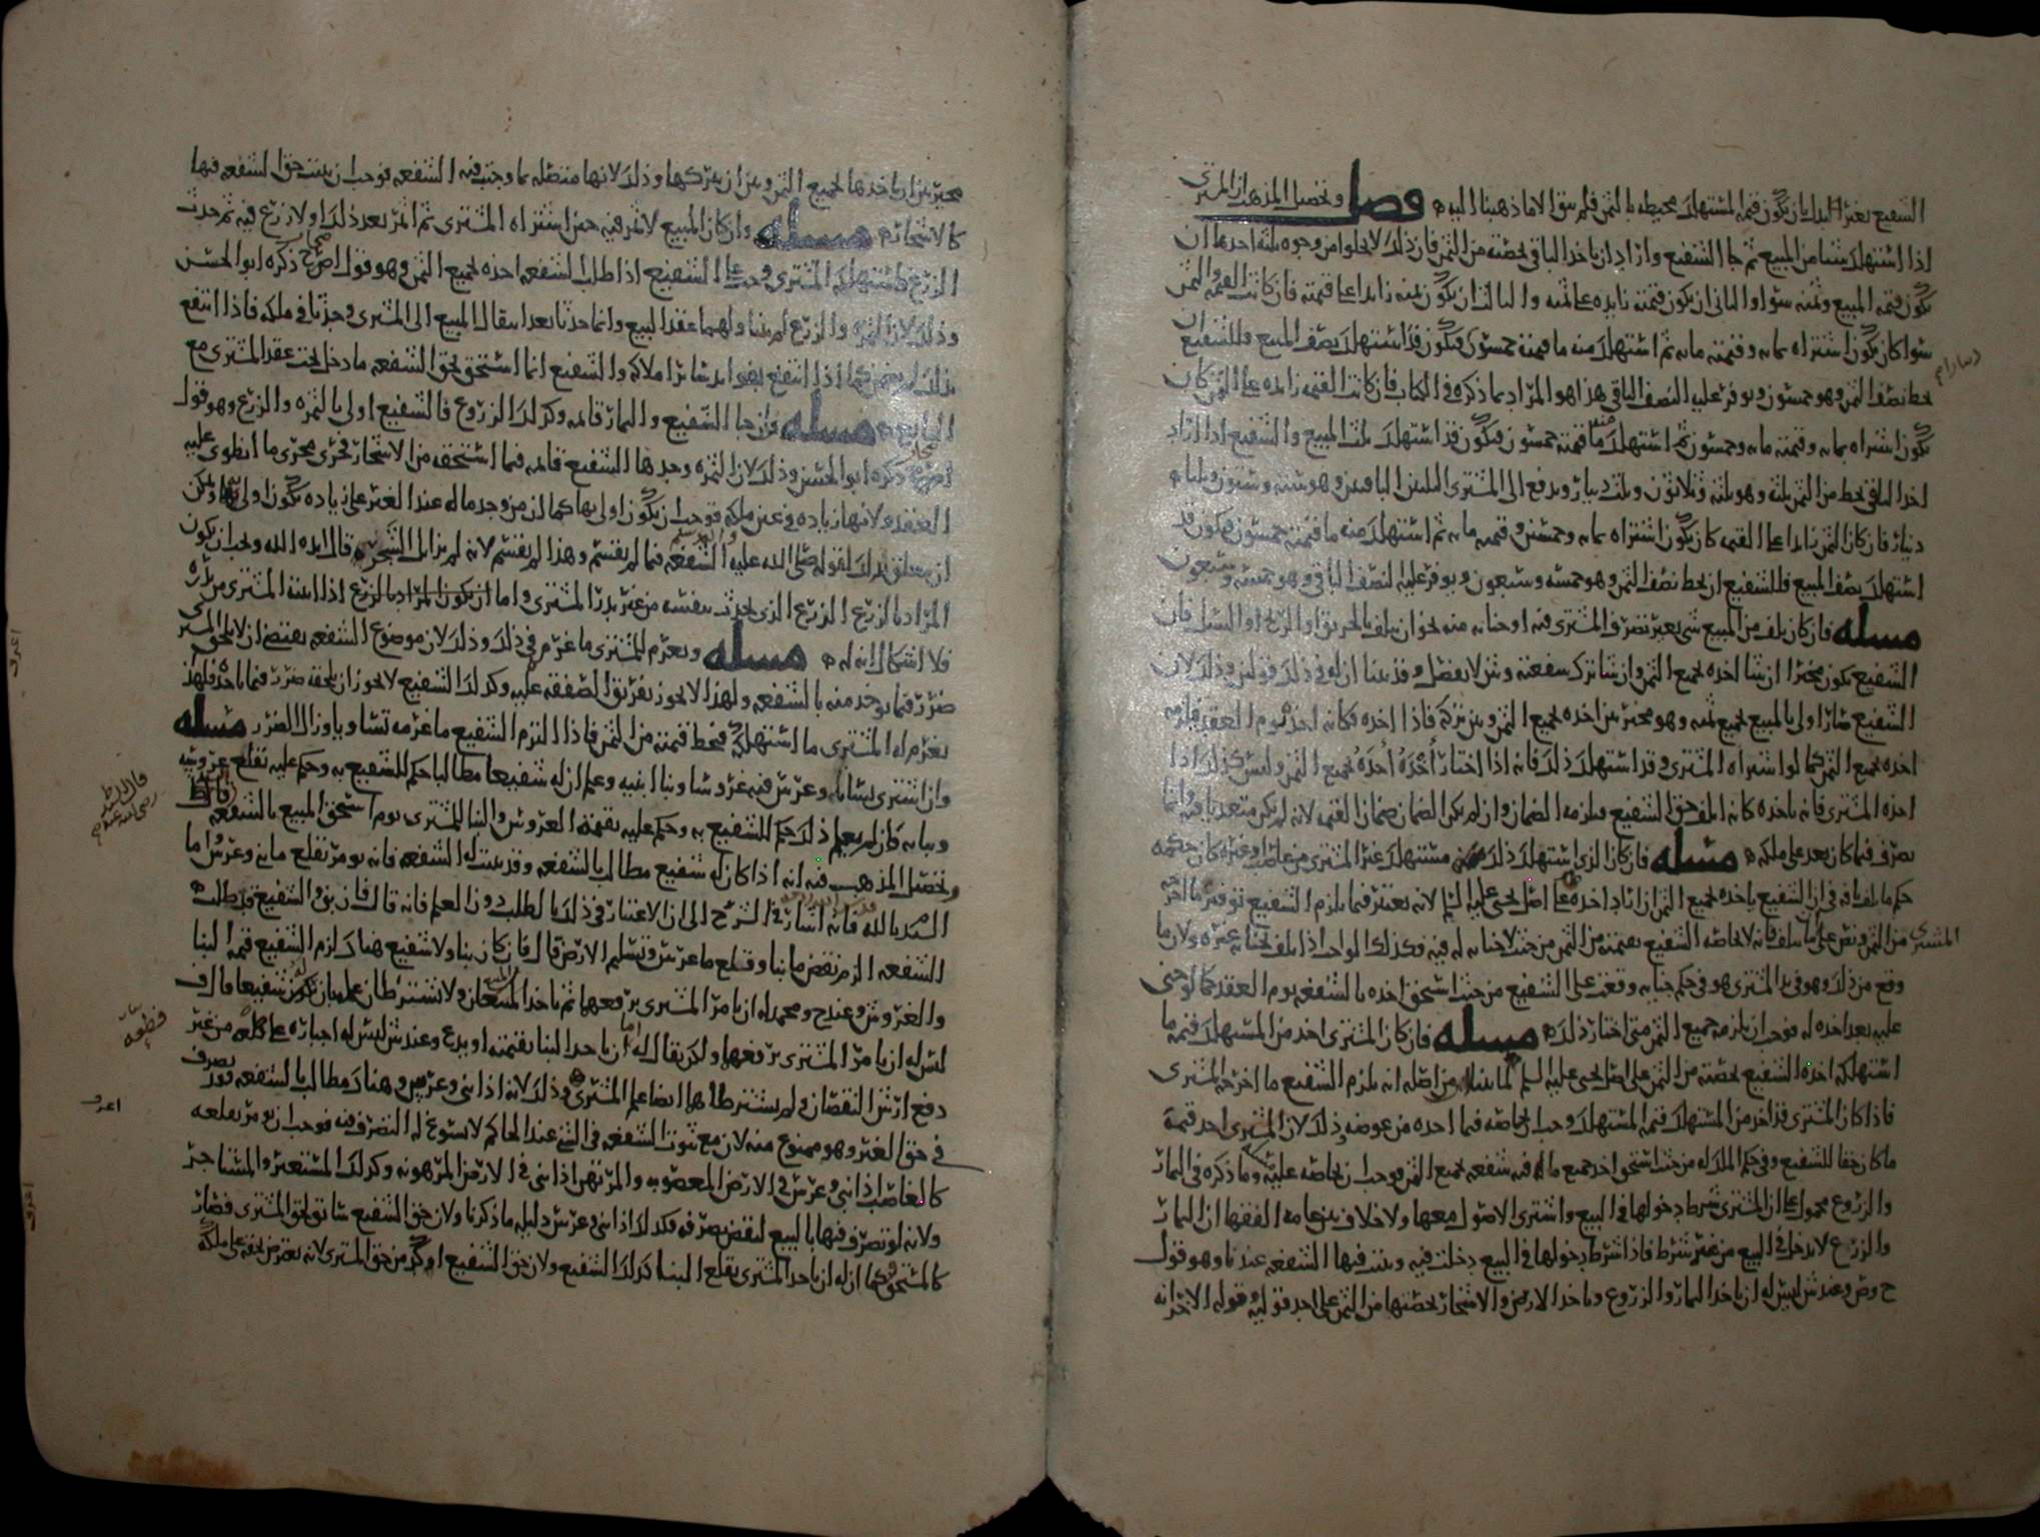 الشفيع بغير البدل بان يكون قيمة المستهلك محيطه بالثمن فلم يبق الا ما ذهبنا اليه فصل وتحصيل المذهب ان المشترى
اذا استهلك شيا من المبيع ثم جا الشفيع واراد ان ياخذ الباقي بحصته من الثمن فان ذلك لا يخلوا من وجوه ثلثه احدها ان
يكون قيمه المبيع وثمنه سوا والثاني ان يكون قيمته زايده على ثمنه والثالث ان يكون ثمنه زايدا على قيمته فان كانت القيمه والثمن
سوا كان يكون اشتراه بمايه وقيمته مايه ثم استهلك منه ما قيمته خمسون فيكون قد استهلك نصف المبيع فللشفيع ان
يحط نصف الثمن وهو خمسون ويوفر عليه النصف الباقي هذا هو المراد بما ذكره في الكتاب فان كانت القيمه زايده على الثمن كان
يكون اشتراه بمايه وقيمته مايه وخمسون ثم استهلك منه ما قيمته خمسون فيكون قد استهلك ثلث المبيع والشفيع اذا اراد
اخذ الباقي يحط من الثمن ثلثه وهو ثلثه وثلاثون وثلث دينار ويدفع الى المشترى الثلثين الباقيين وهو ستة وستون وثلثا
دينار فان كان الثمن زايدا على القيمه كان يكون اشتراه بمايه وخمسين وقيمته مايه ثم استهلك منه ما قيمته خمسون فيكون قد
استهلك نصف المبيع فللشفيع ان يحط نصف الثمن وهو خمسه وسبعون ويوفر عليه النصف الباقي وهو خمسه وسبعون
مسله فان كان تلف من المبيع شي بغير تصرف المشترى فيه او جنايه منه نحو ان يتلف بالحريق او الريح او السيل فان
الشفيع يكون مخيرا ان شا اخذه بجميع الثمن وان شا ترك شفعته وش لا يفصل وقد بينا ان له في ذلك قولين وذلك لان
الشفيع صار اولى بالمبيع بجميع ثمنه وهو مخير بين اخذه بجميع الثمن وبين تركه فاذا اخذه فكانه اخذه يوم العقد فلزمه
اخذه بجميع الثمن كما لو اشتراه المشترى وقد استهلك ذلك فانه اذا اختار اخذه اخذه بجميع الثمن وليس كذلك اذا
اخذه المشترى فانه باخذه كانه اتلف حق الشفيع فيلزمه الضمان وان لم يكن الضمان ضمان القيمه لانه لم يكن متعديا فيه وانما
تصرف فيما كان يعد على ملكه مسله فان كان الذي استهلك ذلك مستهلك غير المشترى من غاصب او غيره كان حكمه
حكم ما تلف بافه في ان الشفيع ياخذه بجميع الثمن ان اراد اخذه على اصل يحيى عليه السلم لانه يعتبر فيما يلزم الشفيع توفير ما اخرجه
المشترى من الثمن ونص على ان ما تلف فانه لا يحاصه الشفيع بقيمته من الثمن من حيث لا جنايه له فيه فكذلك الواحد اذا تلف بجنايه غيره ولان ما
وقع من ذلك وهو في يد المشترى هو في حكم جنايه وقعت على الشفيع من حيث استحق اخذه بالشفعه يوم العقد كما لو جنى
عليه بعد اخذه له فوجب ان يلزمه جميع الثمن متى اختار ذلك مسله فان كان المشترى اخذ من المستهلك قيمه ما
استهلكه اخذه الشفيع بحصته من الثمن على اصل يحيى عليه السلم لما بينا من اصله انه يلزم الشفيع ما اخرجه المشترى
فاذا كان المشترى قد اخذ من المستهلك قيمه المستهلك وجب ان يحاصه فيما اخذه من عوضه وذلك لان المشترى اخذ قيمة
ما كان حقا للشفيع وفي حكم الملك له من حيث استحق اخذ جميع ماله فيه شفعه بجميع الثمن فوجب ان يحاصه عليه وما ذكره في الثمار
والزروع محمول على ان المشترى شرط دخولها في المبيع واشترى الاصول معها ولا خلاف بين عامه الفقها ان الثمار
والزرع لا يدخل في البيع من غير شرط فاذا شرط دخولها في البيع دخلت فيه وثبتت فيها الشفعه عندنا وهو قول
ح وص وعند ش ليس له ان ياخذ الثمار والزروع وياخذ الارض والاشجار بحصتها من الثمن على احد قوليه وقوله الاخر انه
مخير بين ان ياخذها بجميع الثمن وبين ان يتركها وذلك لانها متصله بما وجبت فيه الشفعه فوجب ان يثبت حق الشفعه فيها
كالاشجار مسله وان كان المبيع لا ثمر فيه حين اشتراه المشترى ثم اثمر بعد ذلك او لا زرع فيه ثم حدث
الزرع فاستهلكه المشترى وجب على الشفيع اذا طلب الشفعه اخذه بجميع الثمن وهو قول اصحاب ح ذكره ابو الحسن
وذلك لان الثمره والزرع لم يتناولهما عقد البيع وانما حدثا بعد انتقال المبيع الى المشترى وحدثا في ملكه فاذا انتفع
بذلك لم يضمن كما اذا انتفع بفوايد سائر املاكه والشفيع انما استحق بحق الشفعه ما دخل تحت عقد المشترى مع
البايع مسله فان جا الشفيع والثمار قائمه وكذلك الزروع فالشفيع اولى بالثمره والزرع وهو قول
اصحاب ح ذكره ابو الحسن وذلك لان الثمره وجدها الشفيع قائمه فيما استحقه من الاشجار فجرى مجرى ما انطوى عليه
العقد ولانها زياده في عين ملكه فوجب ان يكون اولى بها كما ان من وجد ماله عند الغير على زياده يكون اولى بها ويمكن
ان يتعلق بذلك لقوله صلى الله عليه واله وسلم الشفعه فيما لم يقسم وهذا لم يقسم لانه لم يزايل الشجر قال ايده الله ويجب ان يكون
المراد بالزرع الزرع الذي يحدث بنفسه من غير بذر المشترى واما ان يكون المراد بالزرع اذا انبته المشترى من بذره
فلا اشكال انه له مسله ويغرم للمشترى ما غرم في ذلك وذلك لان موضوع الشفعه يقتضي ان لا يلحق المشترى
ضرر فيما يوخذ منه بالشفعه ولهذا لا يجوز تفريق الصفقه عليه وكذلك الشفيع لا يجوز ان يلحقه ضرر فيما ياخذه فلهذا
يغرم له المشترى ما استهلكه فيحط قيمته من الثمن فاذا التزم الشفيع ما غرمه تساويا وزال الضرر مسله
وان اشترى بستانا وغرس فيه غروسا وبنا ابنيه وعلم ان له شفيعا مطالبا حكم للشفيع به وحكم عليه بقلع غروسه
وبنايه فان لم يعلم ذلك حكم للشفيع به وحكم عليه بقيمة الغروس والبنا للمشترى يوم استحق المبيع بالشفعه
وتحصيل المذهب فيه انه اذا كان له شفيع مطالب بالشفعه وقد ثبتت له الشفعه فانه يومر بقلع ما بنى وغرس واما
السيد بالله قدس الله روحه فانه اشار في الشرح الى ان الاعتبار في ذلك بالطلب دون العلم فانه قال فان بنى والشفيع قد طلب
الشفعه الزم نقض ما بنا وقلع ما غرس وتسليم الارض قال فان كان بنا ولا شفيع هناك لزم الشفيع قيمة البنا
والغروس وعند ح ومحمد له ان يامر المشترى برفعها ثم ياخذ المبيع ولا تشترطان علمه بان له شفيعا وقال ف
ليس له ان يامر المشترى برفعها ولكن يقال له اما ان ياخذ البنا بقيمته او يدع وعند ش ليس له اجباره على قلعه من غير
دفع ارش النقصان ولم يشترطا ها ايضا علم المشترى وذلك لانه اذا بنى وغرس وهناك مطالب بالشفعه فقد تصرف
في حق الغير وهو ممنوع منه لان مع ثبوت الشفعه في الشي عند الحاكم لا يسوغ له التصرف فيه فوجب ان يومر بقلعه
كالغاصب اذا بنى وغرس في الارض المغصوبه والمرتهن اذا بنى في الارض المرهونه وكذلك المستعير والمستاجر
ولانه لو تصرف فيها بالبيع لنقض تصرفه فكذلك اذا بنى وغرس دليله ما ذكرنا ولان حق الشفيع سابق لحق المشترى فصار
كالمستحق فكما ان له ان ياخذ المشترى بقلع البنا كذلك الشفيع ولان حق الشفيع اوكد من حق المشترى لانه يعترض به على ملكه